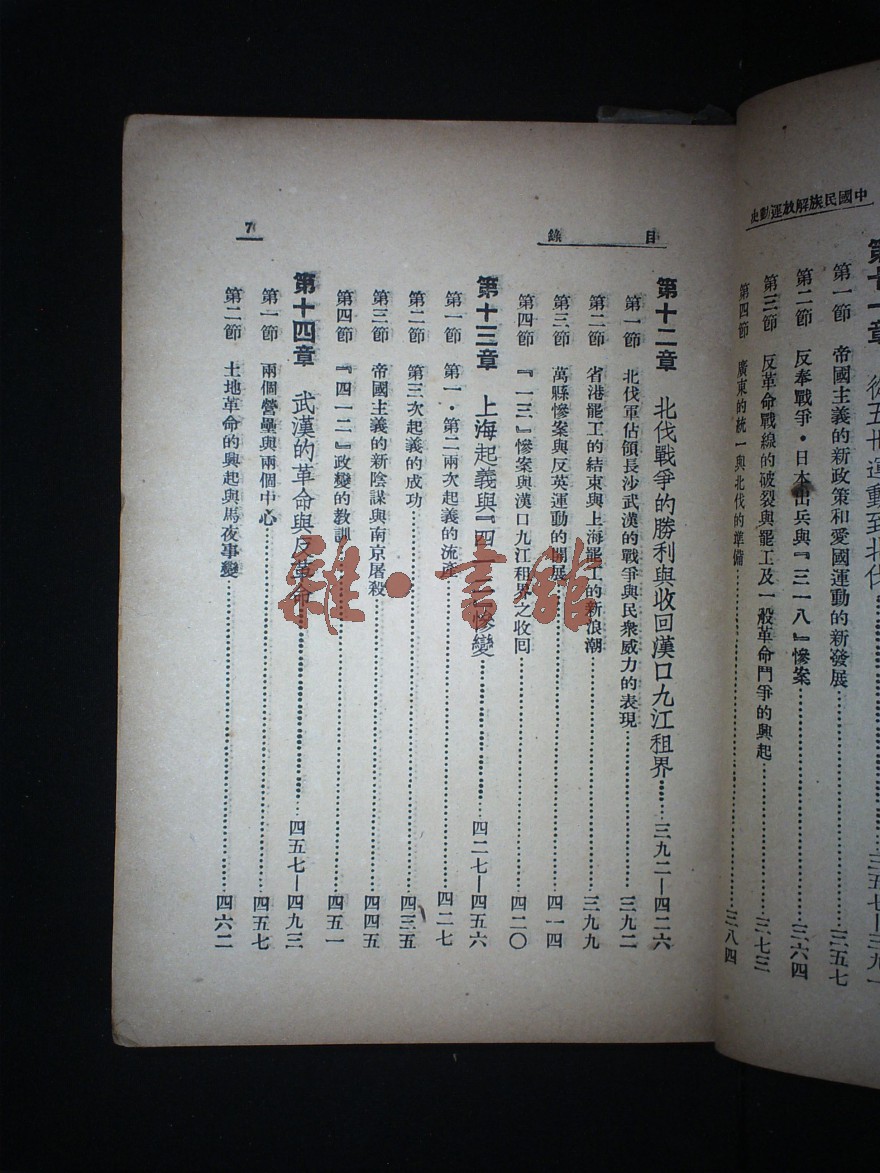 中國民族解放運動史
第十一章 從五卅運動到北伐……三五七—三九一
第一節 帝國主義的新政策和愛國運動的新發展……三五七
第二節 反奉戰爭・日本出兵與『三一八』慘案……三六四
第三節 反革命戰線的破裂與罷工及一般革命鬥爭的興起……三七三
第四節 廣東的統一與北伐的準備……三八四
目錄
7
第十二章 北伐戰爭的勝利與收回漢口九江租界……三九二—四二六
第一節 北伐軍佔領長沙武漢的戰爭與民衆威力的表現……三九二
第二節 省港罷工的結束與上海罷工的新浪潮……三九九
第三節 萬縣慘案與反英運動的開展……四一四
第四節 『一三』慘案與漢口九江租界之收回……四二〇
第十三章 上海起義與『四一二』慘變……四二七—四五六
第一節 第一・第二兩次起義的流產……四二七
第二節 第三次起義的成功……四三五
第三節 帝國主義的新陰謀與南京屠殺……四四五
第四節 『四一二』政變的教訓……四五一
第十四章 武漢的革命與反革命……四五七—四九三
第一節 兩個營壘與兩個中心……四五七
第二節 土地革命的興起與馬夜事變……四六二
雜・書館